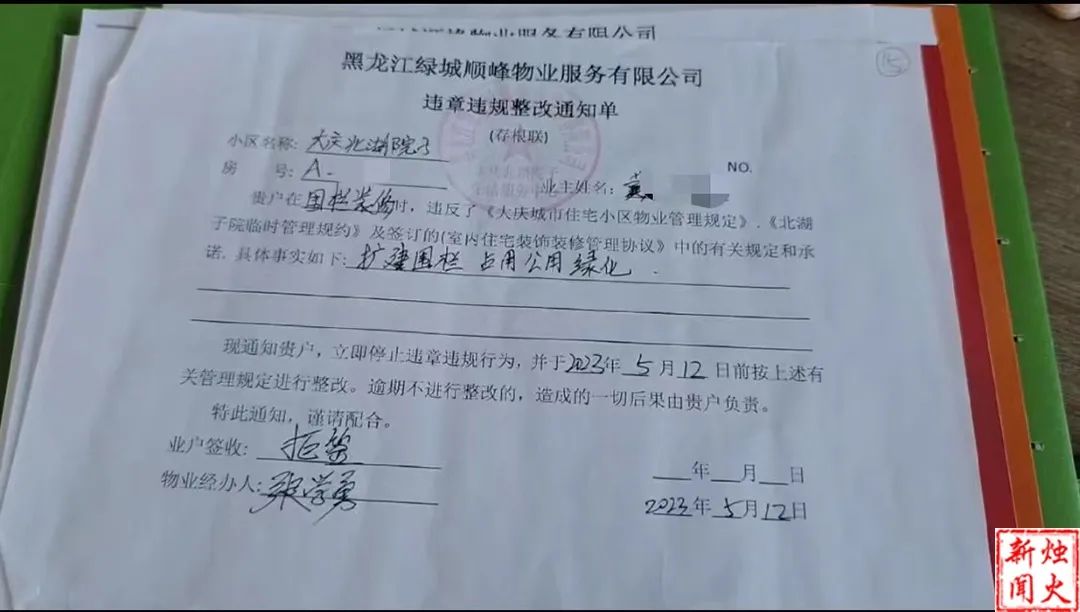 黑龙江绿城顺峰物业服务有限公司
15
违章违规整改通知单
(存根联)
小区名称: 大庆北湖院子
NO.
房 号: A-
业主姓名:
贵户在围栏装修时，违反了《大庆城市住宅小区物业管理规定》.《北湖
子院临时管理规约》及签订的(室内住宅装饰装修管理协议》中的有关规定和承
诺. 具体事实如下: 扩建围栏 占用公用绿化.
现通知贵户，立即停止违章违规行为，并于2023年 5月12 日前按上述有
关管理规定进行整改。逾期不进行整改的，造成的一切后果由贵户负责。
特此通知，谨请配合。
业户签收: 拒签
年 月 日
物业经办人: 张学勇
2023年 5月12日
新烛
闻火